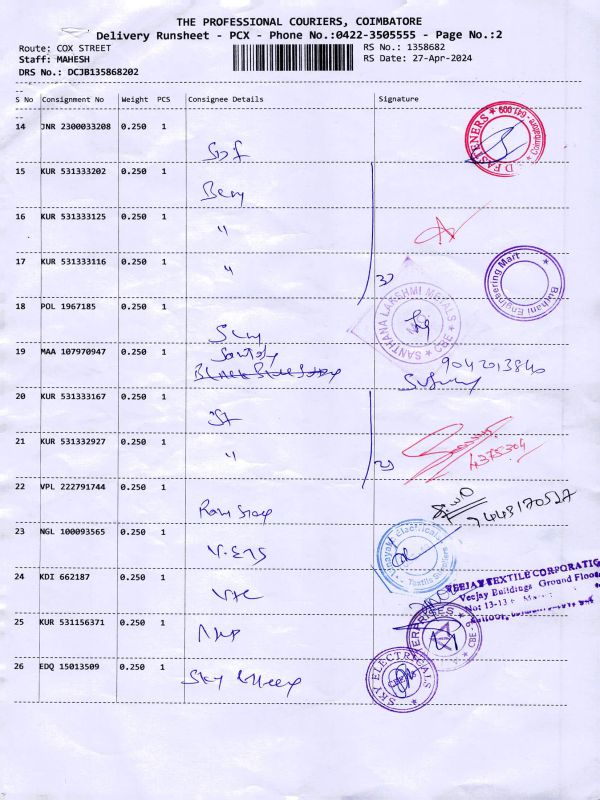 THE PROFESSIONAL COURIERS, COIMBATORE
Delivery Runsheet - PCX - Phone No.:0422-3505555 - Page No.:2
Route: COX STREET
RS No.: 1358682
Staff: MAHESH
RS Date: 27-Apr-2024
DRS No.: DCJB135868202
S No Consignment No Weight PCS Consignee Details Signature
14 JNR 2300033208 0.250 1
D FASTENERS * Coimbatore - 641 009
15 KUR 531333202 0.250 1
16 KUR 531333125 0.250 1
"
17 KUR 531333116 0.250 1
" 3)
Burhani Engineering Mart *
18 POL 1967185 0.250 1
SANTHANA LAKSHMI METALS * CBE *
19 MAA 107970947 0.250 1
9042013840
20 KUR 531333167 0.250 1
21 KUR 531332927 0.250 1
" 2)
4375304
22 VPL 222791744 0.250 1
9448170527
23 NGL 100093565 0.250 1
Electricals
Textile Suppliers
24 KDI 662187 0.250 1
VTC
VEEJAY TEXTILE CORPORATIO
Veejay Buildings Ground Floor
No: 13-13
25 KUR 531156371 0.250 1
ERPRISES * CBE - 9 *
26 EDQ 15013509 0.250 1
Sky
SKY ELECTRICALS *